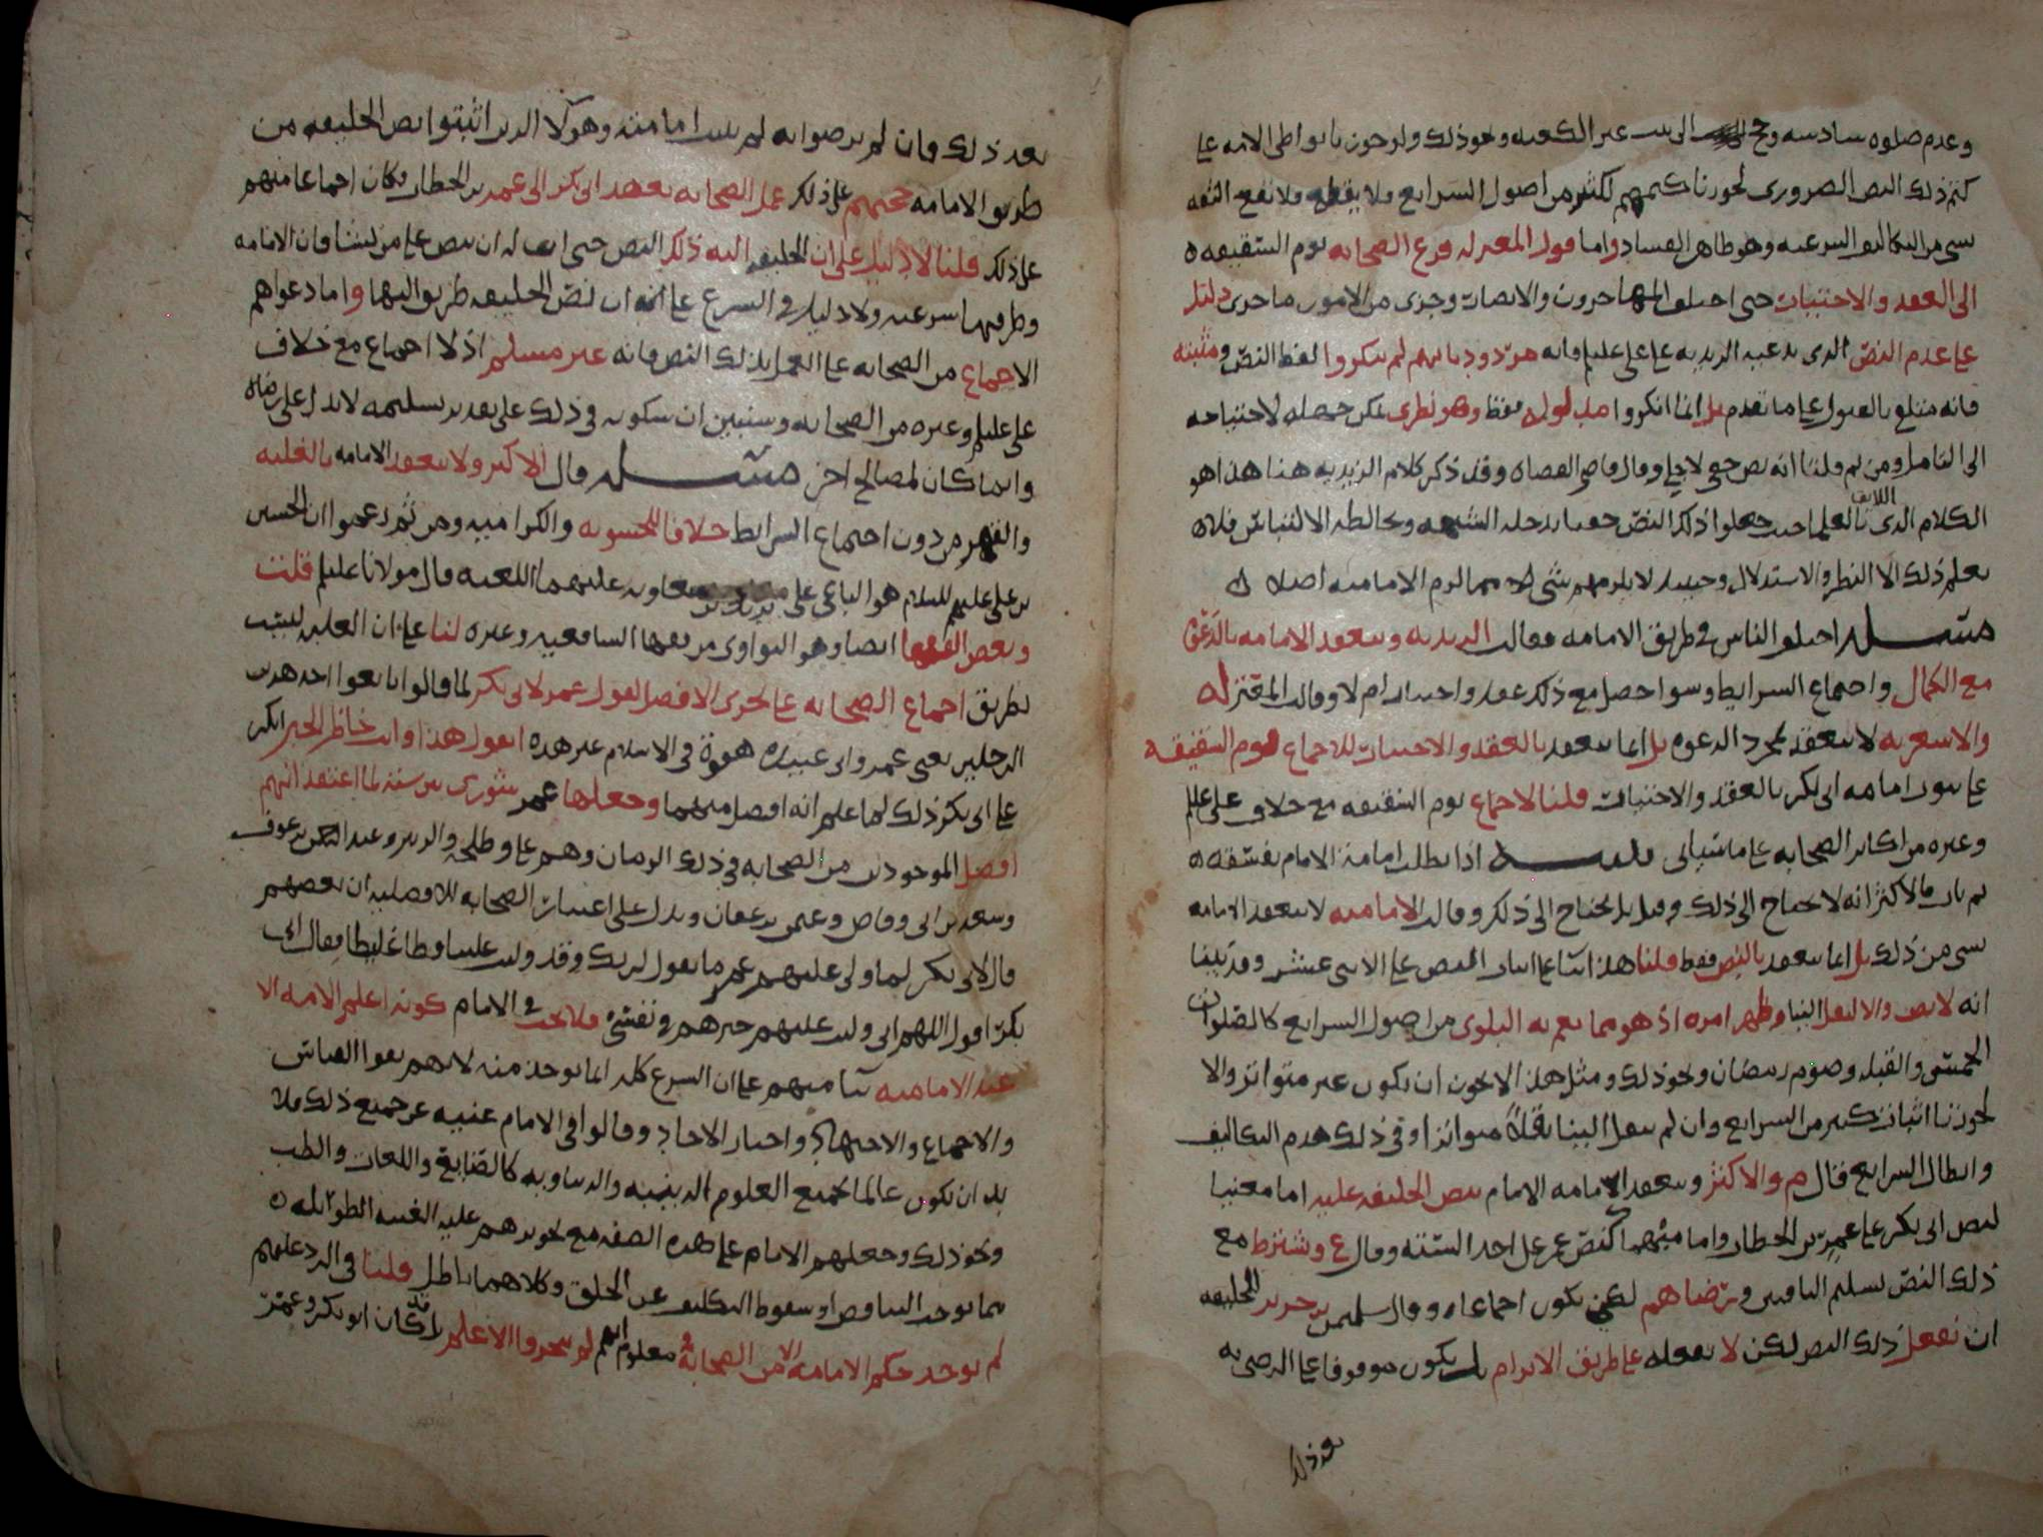 وعدم صلوه سادسه وحج الى بيت غير الكعبه ونحو ذلك ولو جوزنا تواطى الامه على
كتم ذلك النص الضرورى لجوزنا كتمهم لكثير من اصول الشرايع فلا يقطع ولا تقع الثقه
بشى من التكاليف الشرعيه وهو ظاهر الفساد واما قول المعتزله فزع الصحابه يوم السقيفه
الى العقد والاختيار حتى اختلف المهاجرون والانصار وجرى من الامور ما جرى دليل
على عدم النص الذى يدعيه الزيديه على على عليلم فانه مردود بانهم لم ينكروا لفظ النص ومتنه
فانه متلقى بالقبول على ما تقدم بل انما انكروا مدلوله فقط وهو نظرى يمكن جهله لاحتياجه
الى التامل ومن ثم قلنا انه نص خفى لا جلى وقال قاضى القضاه وقد ذكر كلام الزيديه هنا هذا هو
الكلام الذى اللايق بالعلما حيث جعلوا ذلك النص خفيا يدخله الشبهه ويخالطه الالتباس فلا
يعلم ذلك الا النظر والاستدلال وحينئذ لا يلزمهم شى مما لزم الاماميه اصلا
مسئله اختلف الناس فى طريق الامامه فقالت الزيديه وينعقد الامامه بالدعوه
مع الكمال واجتماع الشرايط وسوا حصل مع ذلك عقد واختيار ام لا وقالت المعتزله
والاشعريه لا ينعقد بمجرد الدعوه بل انما ينعقد بالعقد والاختيار للاجماع يوم السقيفه
على ثبوت امامه ابى بكر بالعقد والاختيار قلنا لا اجماع يوم السقيفه مع خلاف على عليلم
وغيره من اكابر الصحابه على ما سياتى اذا بطلت امامة الامام بفسقه
ثم تاب فالاكثر انه لا يحتاج الى ذلك وقيل بل يحتاج الى ذلك وقالت الاماميه لا ينعقد الامامه
بشى من ذلك بل انما ينعقد بالنص فقط قلنا هذا بنا على اثبات النص على الاثنى عشر وقد بينا
انه لا نص والا لنقل الينا وظهر امره اذ هو مما يعم به البلوى من اصول الشرايع كالصلوات
الخمس والقبله وصوم رمضان ونحو ذلك ومثل هذا لا يجوز ان يكون غير متواتر والا
لجوزنا اثبات كثير من الشرايع وان لم ينقل الينا نقلاً متواترا وفى ذلك هدم التكاليف
وابطال الشرايع قال م والاكثر وينعقد الامامه الامام بنص الخليفه عليه اما معينا
كنص ابى بكر على عمر بن الخطاب واما مبهما كنص عمر على احد الستة وقال ع ويشترط مع
ذلك النص تسليم الباقين ورضاهم لكى يكون اجماعا وقال سليمن بن جرير الخليفه
ان يفعل ذلك النص لكن لا يفعله على طريق الابرام بل يكون موقوفا على الرضى به
بعد ذلك
بعد ذلك فان لم يرضوا به لم يثبت امامته وهولا الذين اثبتوا نص الخليفه من
طريق الامامه حجتهم على ذلك عمل الصحابه بعهد ابى بكر الى عمر بن الخطاب فكان اجماعا منهم
على ذلك قلنا لا دليل على ان الخليفه اليه ذلك النص حتى ان له ان ينص على من يشا فان الامامه
وطرقها شرعيه ولا دليل فى الشرع على ان نص الخليفه طريق اليها واما دعواهم
الاجماع من الصحابه على العمل بذلك النص فانه غير مسلم اذ لا اجماع مع خلاف
على عليلم وغيره من الصحابه وسنبين ان سكوته فى ذلك على تقدير تسليمه لا يدل على رضاه
وانما كان لمصالح اخر مسئله قال الاكثر ولا ينعقد الامامه بالغلبه
والقهر من دون اجتماع الشرايط خلافا للحشويه والكراميه ومن ثم زعموا ان الحسين
بن على عليهم السلام هو الباغى على يزيد بن معاويه عليهما اللعنه قال مولانا عليلم قلت
وبعض الفقها ايضا وهو النواوى من فقها الشافعيه وغيره لنا على ان الغلبه ليست
بطريق اجماع الصحابه على تحرى الافضل لقول عمر لابى بكر لما قالوا بايعوا احد هذين
الرجلين يعنى عمر وابى عبيده هفوة فى الاسلام غير هذه اتقول هذا وانت حاضر الخبر انكر
على ابى بكر ذلك لما علم انه افضل منهما وجعلها عمر شورى بين ستة لما اعتقد انهم
افضل الموجودين من الصحابه فى ذلك الزمان وهم على وطلحه والزبير وعبد الرحمن بن عوف
وسعد بن ابى وقاص وعثمن بن عفان ويدل على اعتبار الصحابه للافضليه ان بعضهم
قال لابى بكر لما ولى عليهم عمر ما تقول لربك وقد وليت علينا فظا غليظا فقال ابو
بكر اقول اللهم انى وليت عليهم خيرهم فى نفسى فلا يجب فى الامام كونه اعلم الامه الا
عند الاماميه بنا منهم على ان الشرع كله انما يوخذ منه لانهم نفوا القياس
والاجماع والاجتهاد واخبار الاحاد وقالوا فى الامام غنيه عن جميع ذلك فلا
بد ان يكون عالما بجميع العلوم الدينيه والدنياويه كالصنايع واللغات والطب
ونحو ذلك وجعلهم الامام على هذه الصفه مع تجويزهم عليه الغيبه الطويله
مما يوجب التناقض او سقوط التكليف عن الخلق وكلاهما باطل قلنا فى الرد عليهم
لم يوخذ حكم الامامه الا من الصحابه ومعلوم انهم لم يتحروا الاعلم بل قد كان ابو بكر وعمر